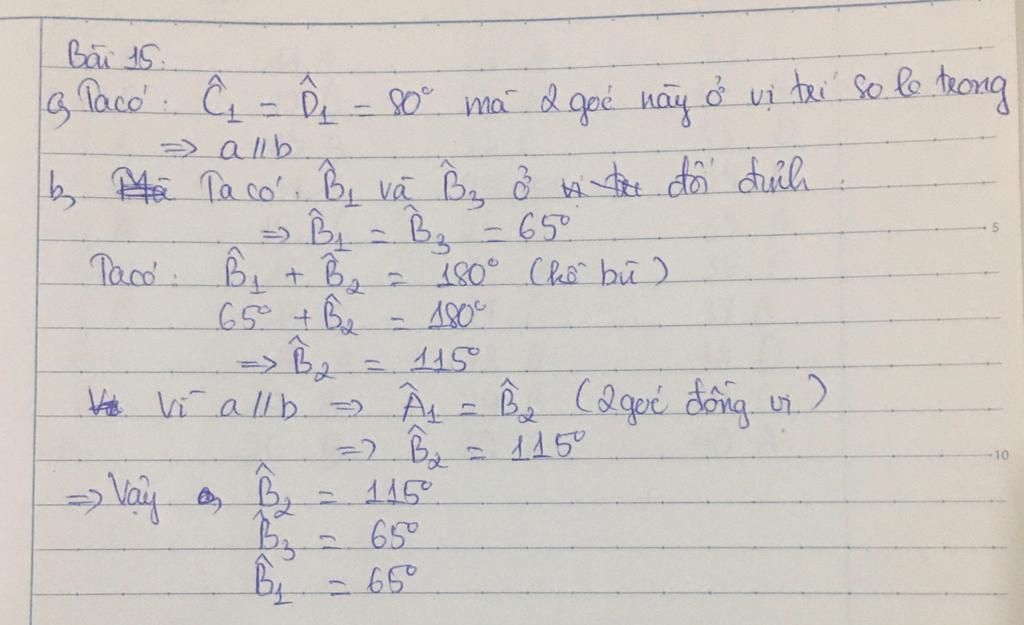 Bài 15.
a, Ta có: Ĉ₁ = D̂₁ = 80° mà 2 góc này ở vị trí so le trong
=> a//b
b, Ta có: B̂₁ và B̂₃ ở đối đỉnh.
=> B̂₁ = B̂₃ = 65°
5
Ta có: B̂₁ + B̂₂ = 180° (kề bù)
65° + B̂₂ = 180°
=> B̂₂ = 115°
Vì a//b => Â₁ = B̂₂ (2 góc đồng vị)
=> B̂₂ = 115°
10
=> Vậy B̂₂ = 115°
B̂₃ = 65°
B̂₁ = 65°